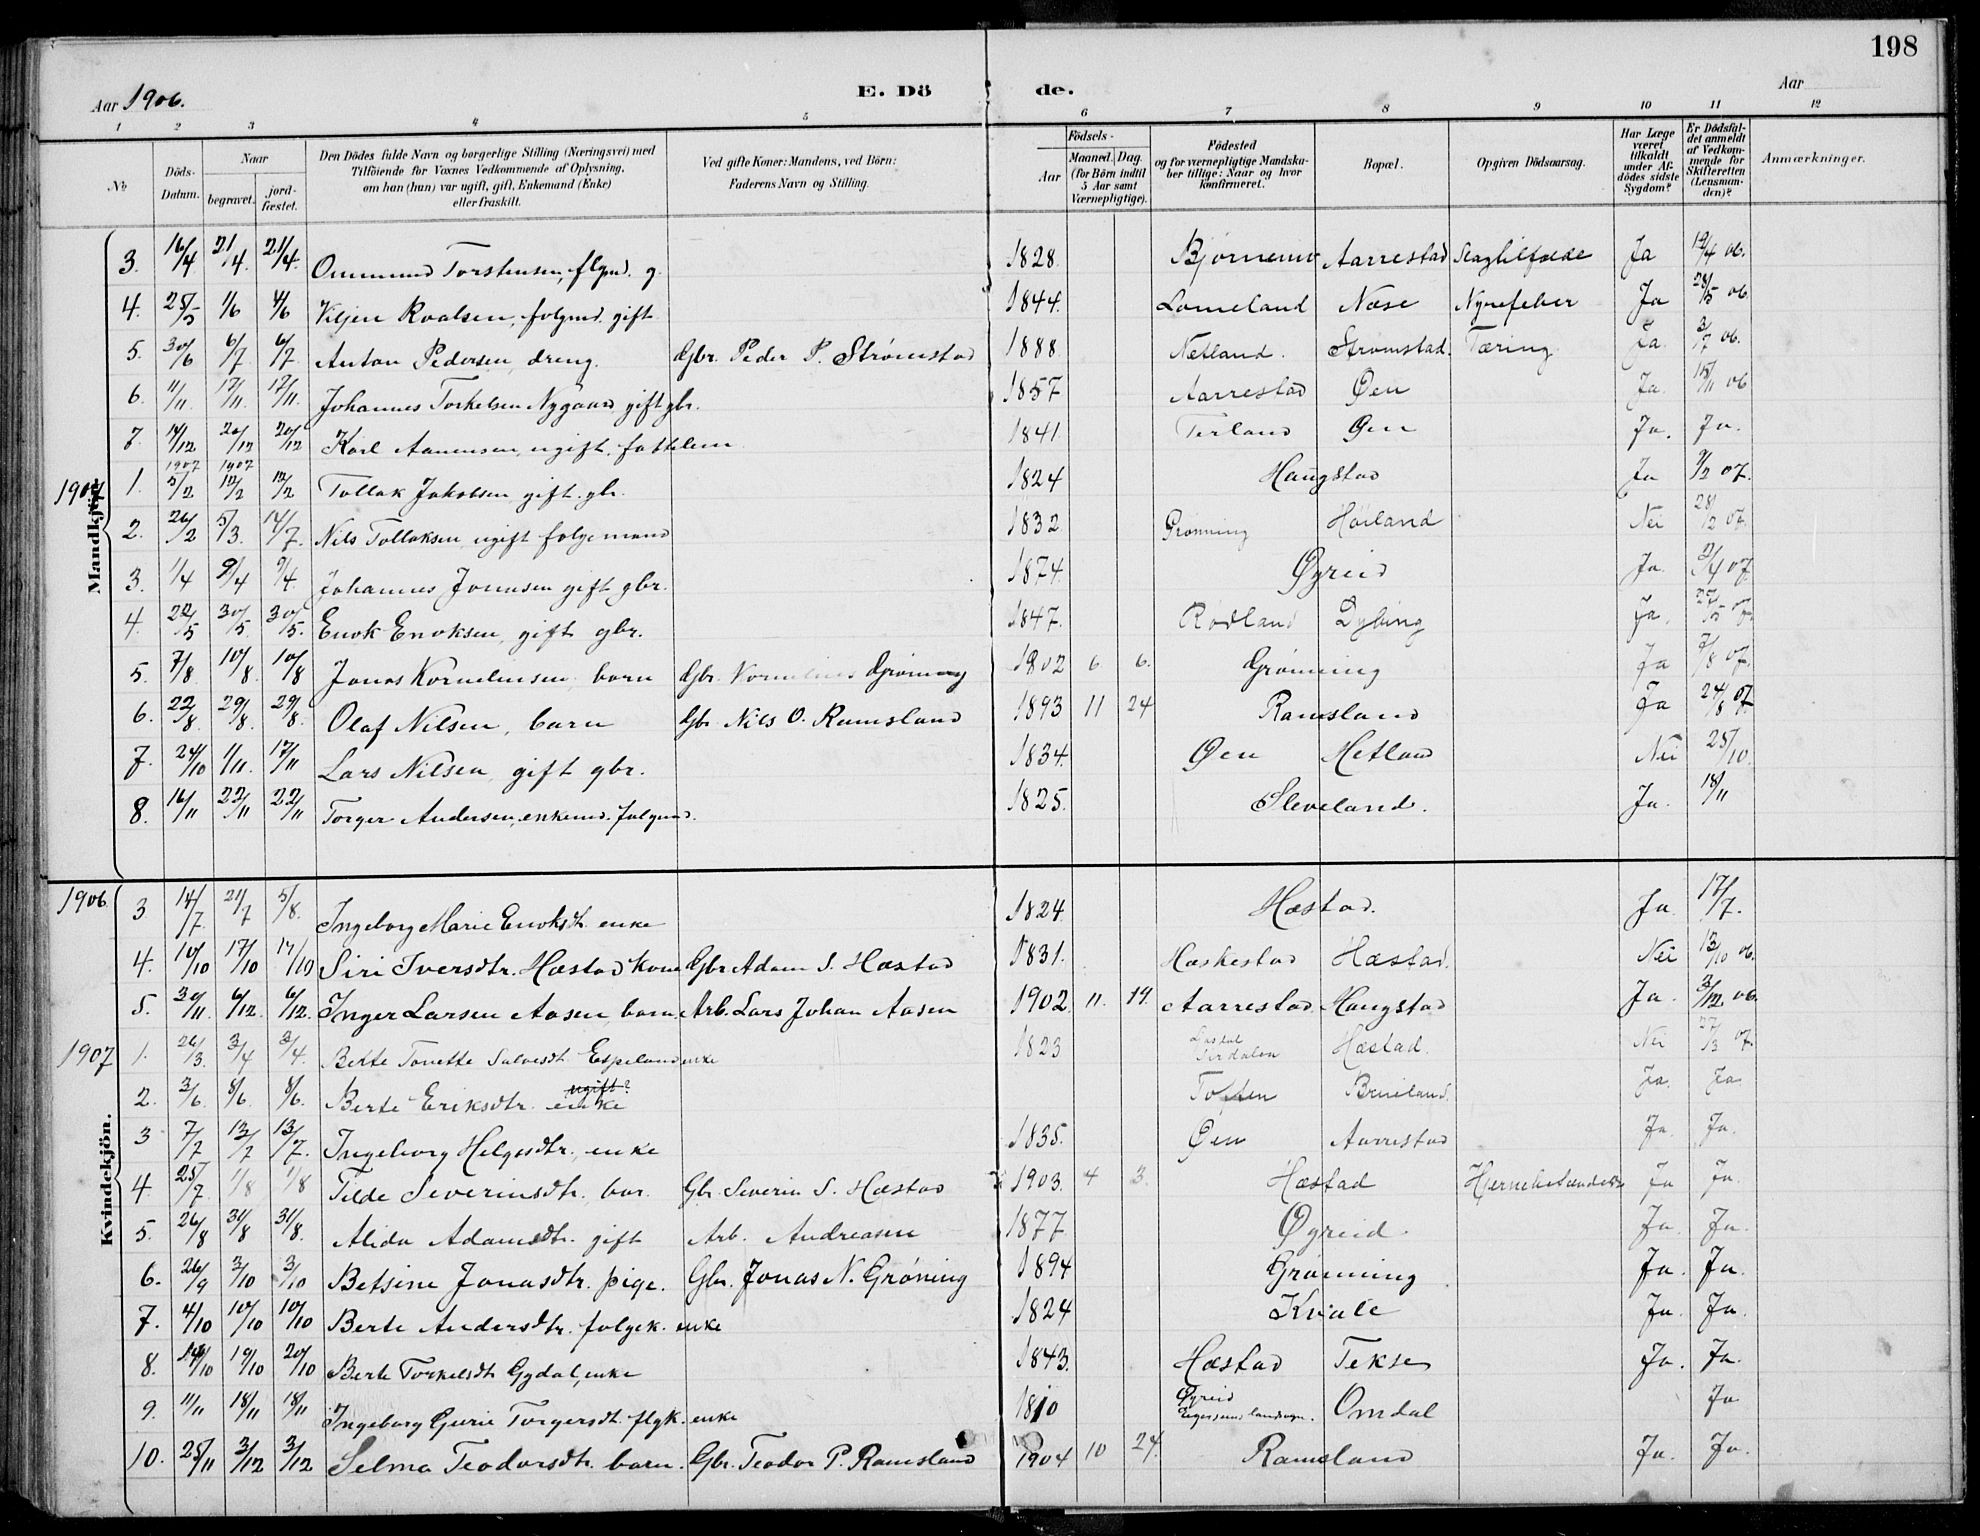 198
Aar 1906. E. Dö de. Aar
1 2 3 4 5 6 7 8 9 10 11 12
No
Döds-Datum.
Naar begravet. jordfæstet.
Den Dödes fulde Navn og borgerlige Stilling (Næringsvei) med
Tilföiende for Voxnes Vedkommende af Oplysning,
om han (hun) var ugift, gift, Enkemand (Enke)
eller fraskilt.
Ved gifte Koner: Mandens, ved Börn:
Faderens Navn og Stilling.
Födsels-
Aar Maaned. Dag.
(for Börn indtil
5 Aar samt
Værnepligtige).
Födested
og for værnepligtige Mandskaber tillige: Naar og hvor
Konfirmeret.
Bopæl.
Opgiven Dödsaarsag.
Har Læge
været
tilkaldt
under Afdödes sidste
Sygdom?
Er Dödsfaldet anmeldt
af Vedkommende for
Skifteretten
(Lensmanden)?
Anmærkninger.
Mandkjön.
3. 16/4 21/4. 21/4. Ommund Torstensen, flgmd. g. 1828. Aarrestad Slagtilfælde Ja 19/4 06.
4. 25/5 1/6 4/6 Viljen Roalsen, folgmd. gift 1844. Lomeland Næse Nyrefeber Ja 28/5 06.
5. 30/6 6/7. 6/7. Anton Pedersen, dreng. Gbr. Peder P. Strømstad 1888 Netland. Strømstad. Tæring. Ja. 3/7 06.
6. 11/11 17/11. 17/11. Johannes Torkelsen Nygaard gift gbr. 1857 Aarrestad Øen Ja. 15/11 06
7. 14/12 20/12 20/12 Karl Aanensen, ugift. fattelem 1841 Terland Øen Ja. Ja.
1907 1907 1907
1. 5/2 12/2 12/2 Tollak Jakobsen gift. gbr. 1824 Haugstad Ja 9/2 07.
2. 26/2 5/3. 14/7. Nils Tollaksen, ugift folgemand 1832 Grønning Høiland Nei 28/2 07.
3. 1/4 9/4 9/4 Johannes Jonassen gift gbr. 1874. Øyreid Ja. 2/4 07.
4. 22/5 30/5 30/5. Enok Enoksen, gift gbr. 1847. Rødland Dybing Ja. 27/5 07.
5. 7/8 10/8. 10/8 Jonas Kornelinsen, barn Gbr. Kornelius Grønning 1902 6 6. Grønning Ja 7/8 07.
6. 22/8. 29/8. 29/8. Olaf Nilsen, barn Gbr. Nils O. Ramsland 1893 11 24 Ramsland Ja 24/8 07.
7. 24/10 1/11. 17/11 Lars Nilsen, gift gbr. 1834. Øen Netland Nei 25/10.
8. 16/11 22/11 22/11 Torger Andersen, enkemd. folgmd. 1825. Sleveland. Ja. 18/11
Kvindekjön.
1906 3 14/7. 21/7 5/8. Ingeborg Marie Enoksdt. enke 1824. Hæstad. Ja 17/7.
4. 10/10 17/10 17/10 Siri Iversdtr. Hæstad kone Gbr Adam S. Hæstad 1831. Heskestad Hæstad. Nei 13/10 06.
5. 30/11. 6/12. 6/12. Inger Larsen Aasen, barn. Arb. Lars Johan Aasen 1902 11. 19. Aarrestad. Haugstad Ja. 3/12. 06.
1907 1. 26/3. 3/4 3/4. Berte Tonette Salvesdt. Espeland enke 1823 Sirdalen Hæstad. Nei 27/3 07.
2. 3/6. 8/6. 8/6. Berte Eriksdtr. ugift? enke Toften Brueland. Ja. Ja
3 7/7 13/7 13/7. Ingeborg Helgesdtr., enke 1835. Øen Aarrestad Ja. Ja.
4. 25/7 1/8 1/8 Tilde Severinsdtr. bar. Gbr. Severin S. Hæstad 1903. 4 3. Hæstad Hjernebetændelse Ja Ja.
5. 26/8 31/8 31/8. Alida Adamsdtr. gift Arb. Andreasen 1877. Øyreid. Ja. Ja.
6. 26/9 3/10 3/10 Betsine Jonasdtr. pige. Gbr. Jonas N. Grøning 1894 Grønning Ja. Ja.
7. 4/10 10/10 10/10 Berte Andersdtr. folgek. enke 1824 Kvale Ja. Ja.
8. 14/10 19/10 20/10 Berte Torkelsdt. Gydal, enke 1843. Hæstad Tekse Ja. Ja.
9. 11/11 18/11 18/11 Ingeborg Gurie Torgersdt. flgk. enke 1810 Øyreid Egersund landsogn. Omdal Ja
10. 25/11 3/12 3/12 Selma Teodorsdtr. barn. Gbr. Teodor P. Ramsland 1904 10 24. Ramsland Ja. Ja.